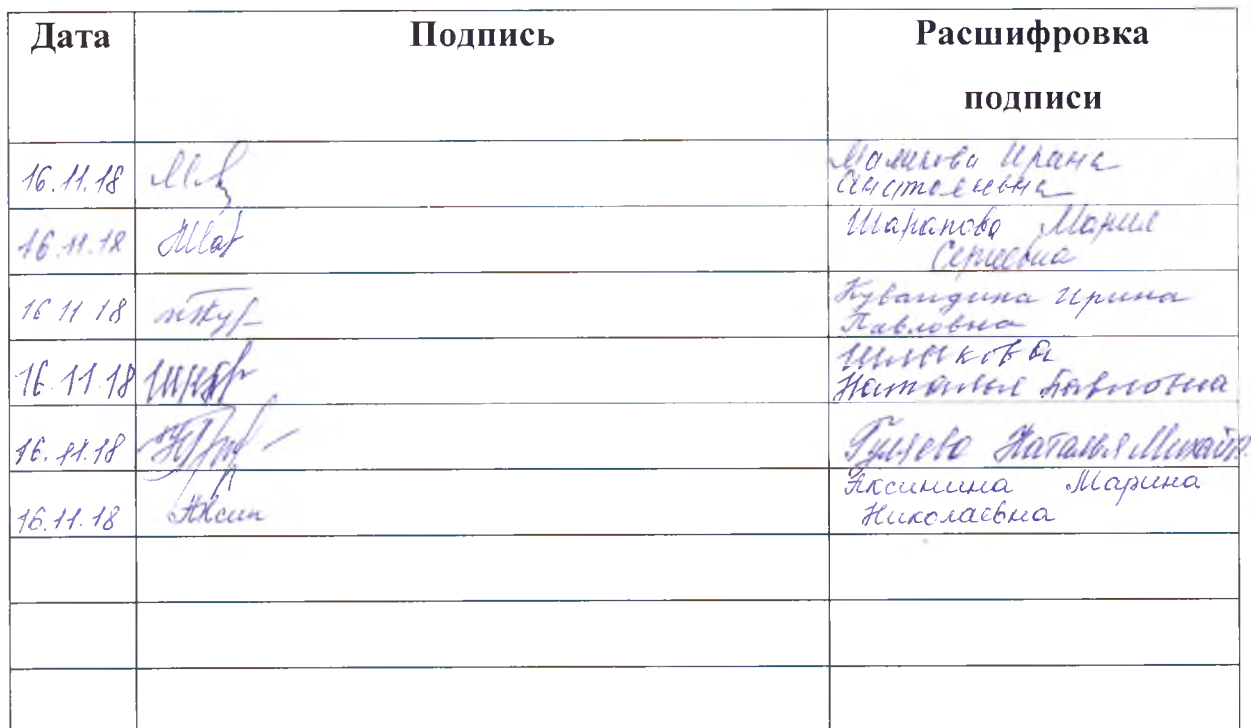 Дата Подпись Расшифровка
подписи
16.11.18 Маликова Ирина
Анатольевна
16.11.18 Шарапова Мария
Сергеевна
16 11 18 Кувандина Ирина
Павловна
16.11.18 Шлыкова
Наталья Павловна
16.11.18 Гуляева Наталья Михайл.
16.11.18 Аксин Аксинина Марина
Николаевна